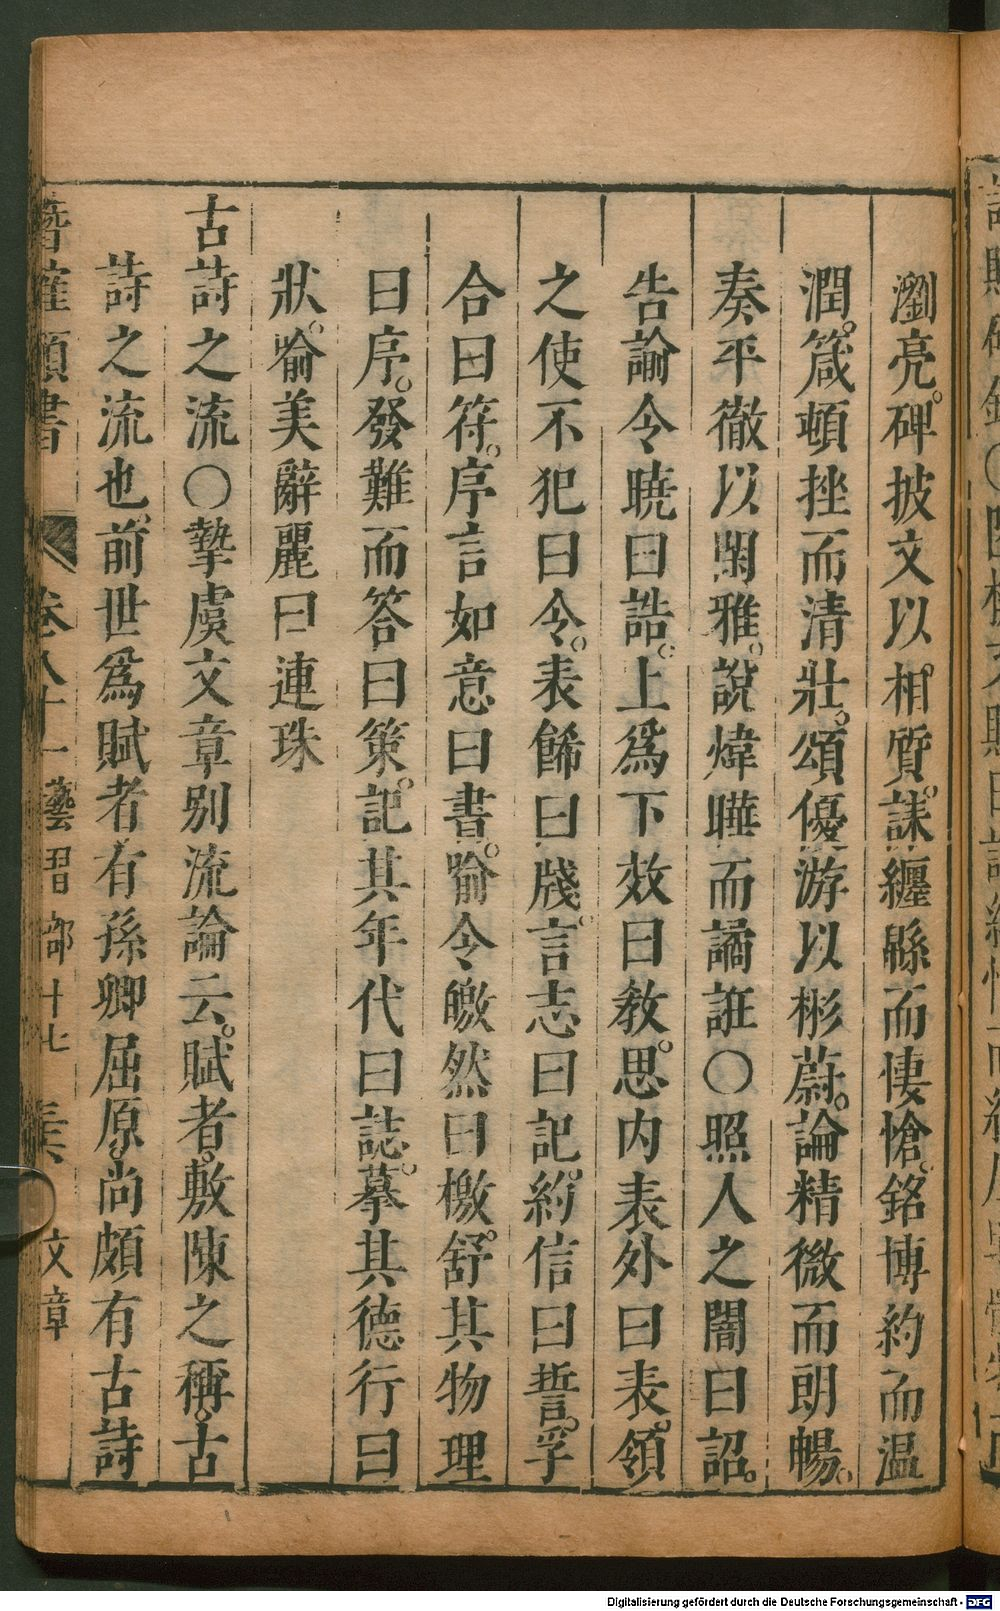 瀏亮。碑披文以相質。誄纏緜而悽愴。銘博約而温
潤。箴頓挫而清壯。頌優游以彬蔚。論精微而朗暢。
奏平徹以閑雅。說煒曄而譎誑〇照人之闇曰詔。
告諭令曉曰誥。上爲下效曰敎。思内表外曰表。領
之使不犯曰令。表餙曰牋。言志曰記。約信曰誓。孚
合曰符。序言如意曰書。喻令皦然曰檄。舒其物理
曰序。發難而答曰策。記其年代曰誌。摹其德行曰
狀。喻美辭麗曰連珠
古詩之流〇摯虞文章别流論云。賦者。敷陳之稱。古
詩之流也。前世爲賦者。有孫卿屈原。尚頗有古詩
潛確類書 卷八十一 藝習部十七 文章
Digitalisierung gefördert durch die Deutsche Forschungsgemeinschaft - DFG